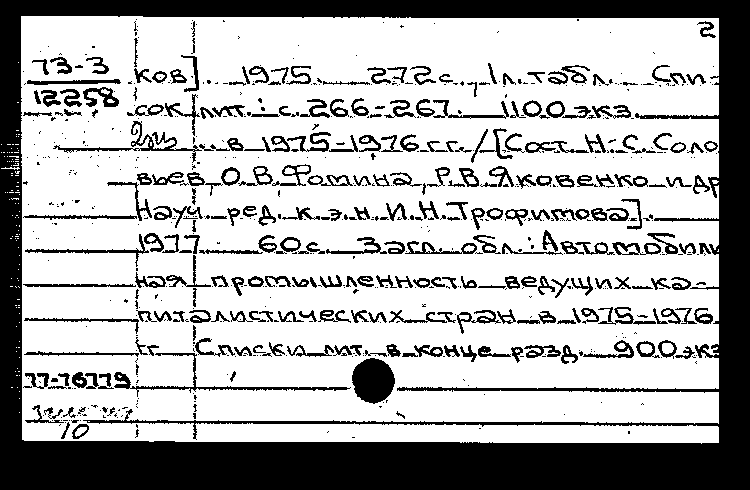 2
73-3 ков]. 1975. 272с., 1л.табл. Спи-
12258 сок лит.: с. 266-267. 1100 экз.
2экз ... в 1975-1976 гг. / [Сост. Н.С. Соло
вьев, О.В. Фомина, Р.В. Яковенко и др
Науч. ред. к.э.н. И.Н. Трофимова].
1977 60с. Загл. обл.: Автомобиль
ная промышленность ведущих ка-
питалистических стран в 1975-1976
гг. Списки лит. в конце разд. 900 экз
77-76779
10